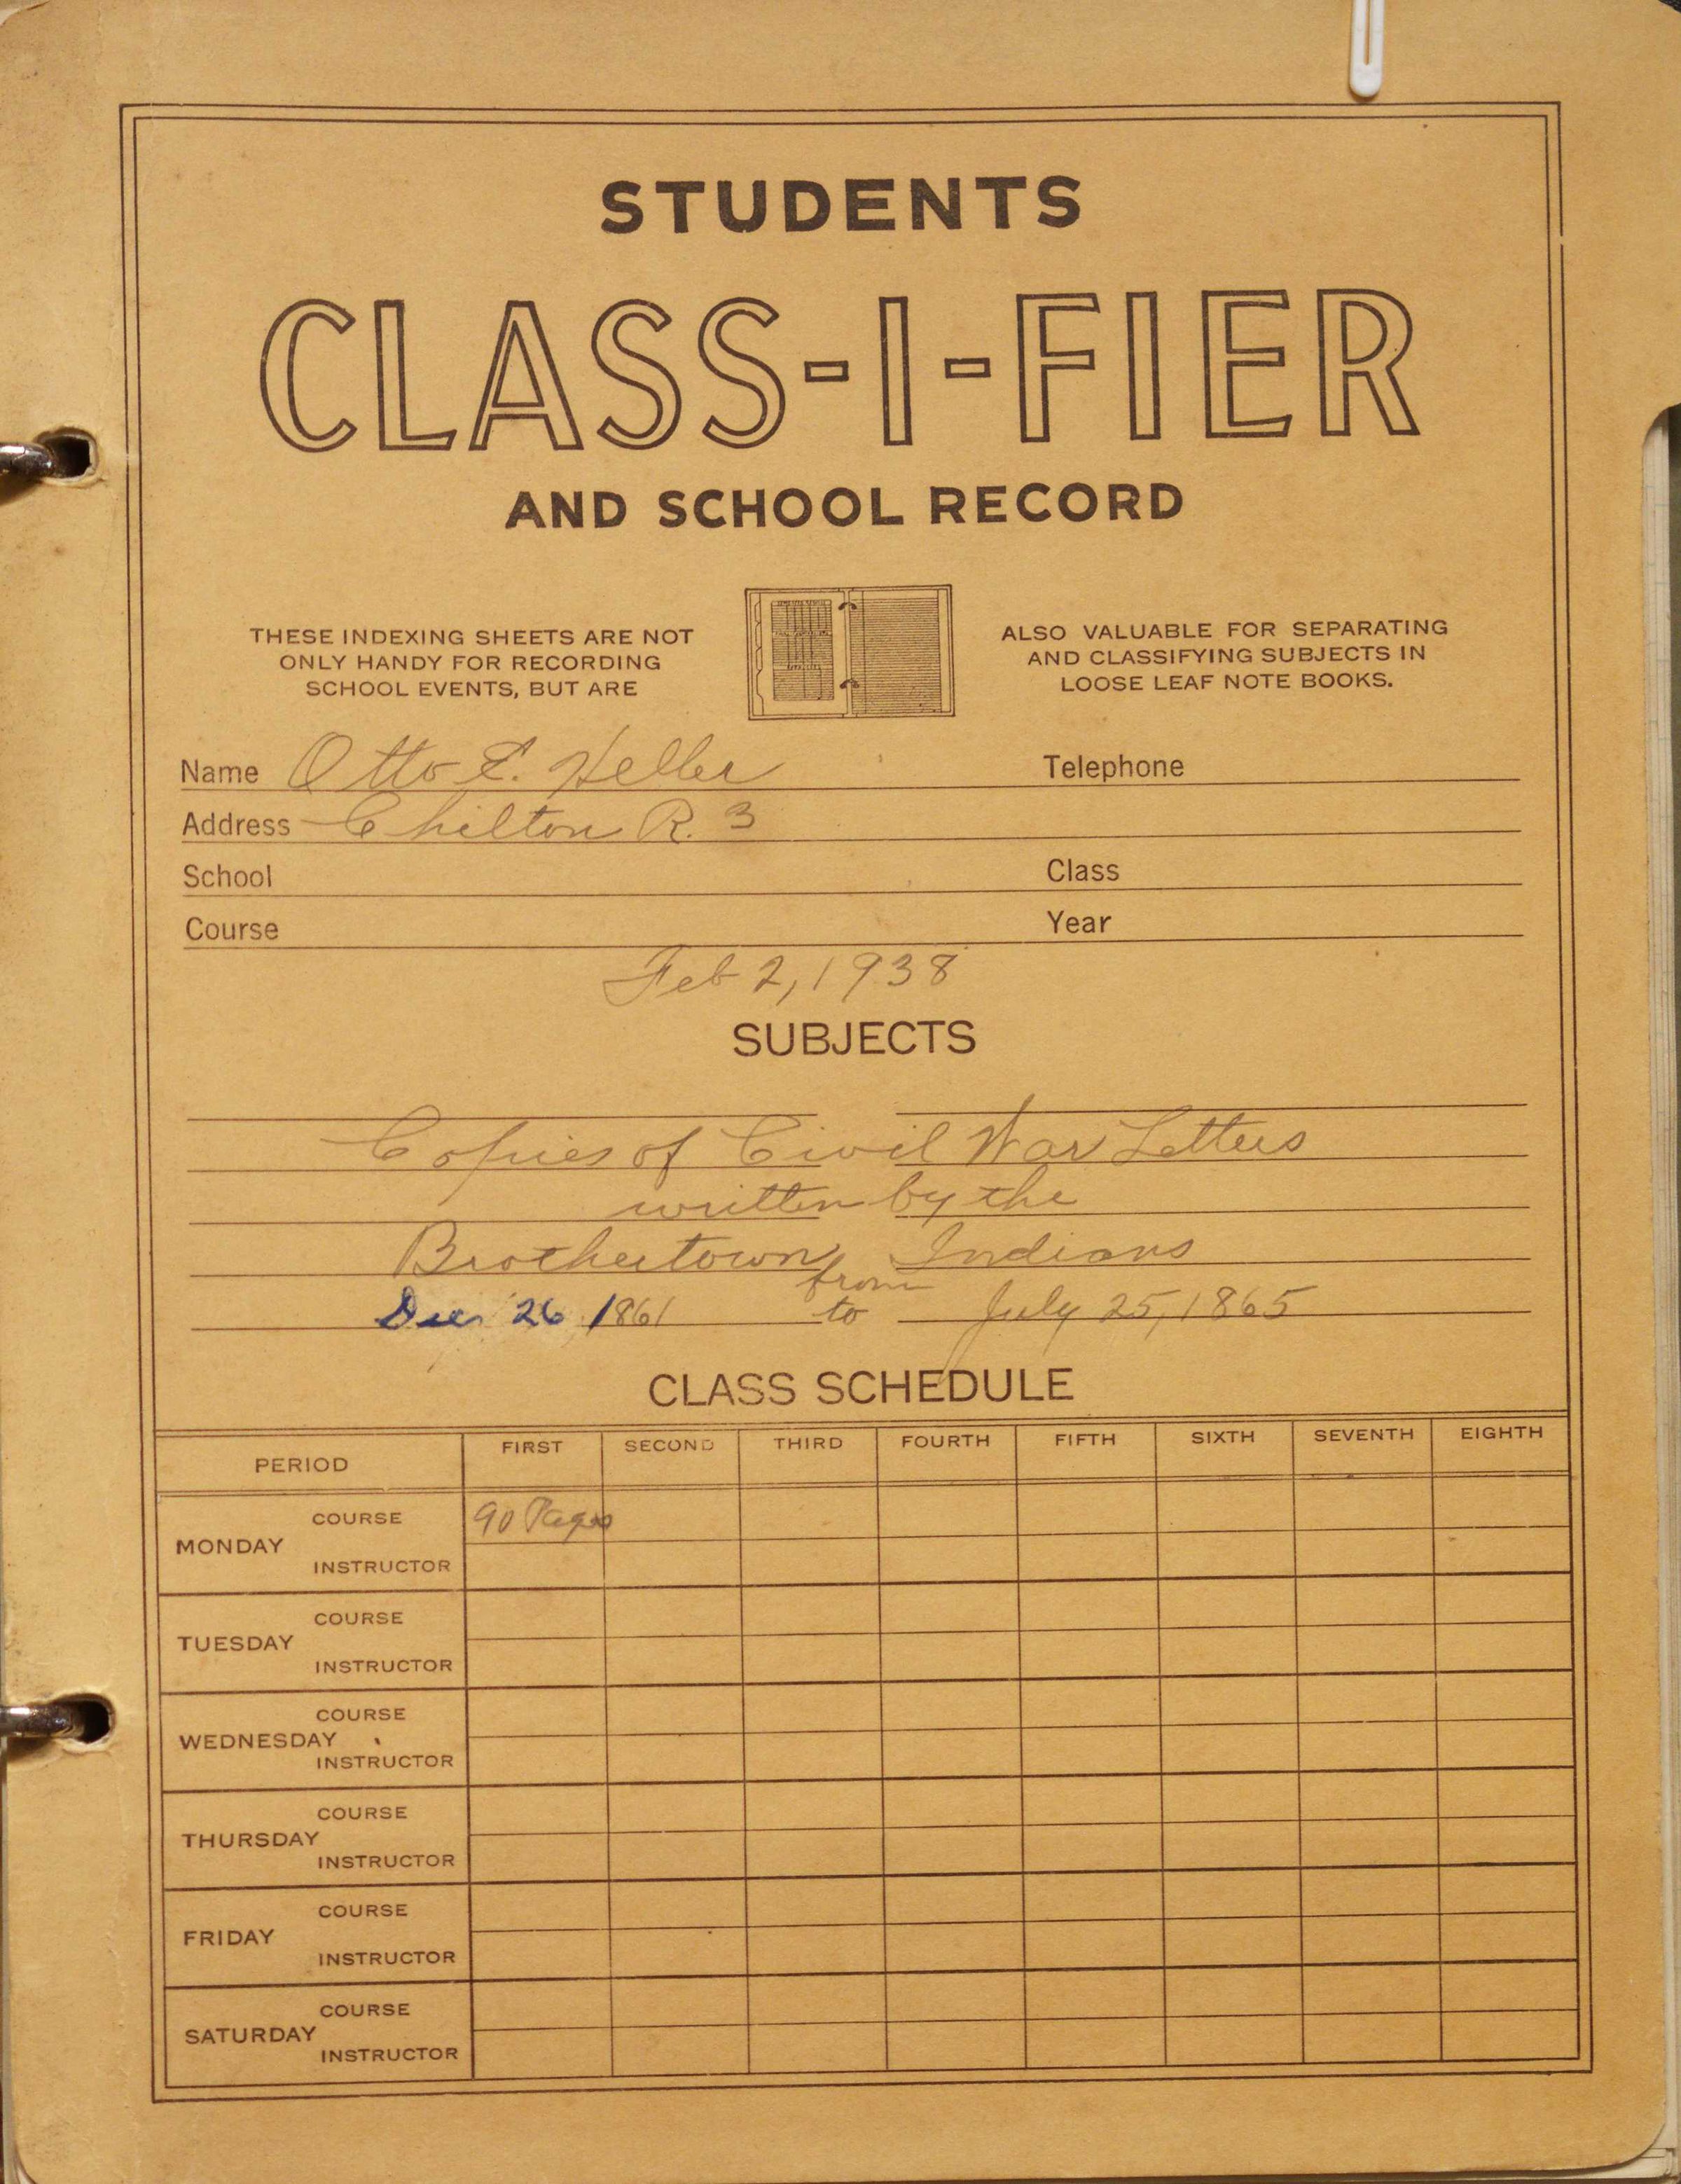 STUDENTS
CLASS-I-FIER
AND SCHOOL RECORD
THESE INDEXING SHEETS ARE NOT
ONLY HANDY FOR RECORDING
SCHOOL EVENTS, BUT ARE
ALSO VALUABLE FOR SEPARATING
AND CLASSIFYING SUBJECTS IN
LOOSE LEAF NOTE BOOKS.
Name Otto E. Heller Telephone
Address Chilton R. 3
School Class
Course Year
Feb 2, 1938
SUBJECTS
Copies of Civil War Letters
written by the
Brothertown Indians
from
Dec 26 1861 to July 25, 1865
CLASS SCHEDULE
PERIOD FIRST SECOND THIRD FOURTH FIFTH SIXTH SEVENTH EIGHTH
COURSE 90 Pages
MONDAY
INSTRUCTOR
COURSE
TUESDAY
INSTRUCTOR
COURSE
WEDNESDAY
INSTRUCTOR
COURSE
THURSDAY
INSTRUCTOR
COURSE
FRIDAY
INSTRUCTOR
COURSE
SATURDAY
INSTRUCTOR